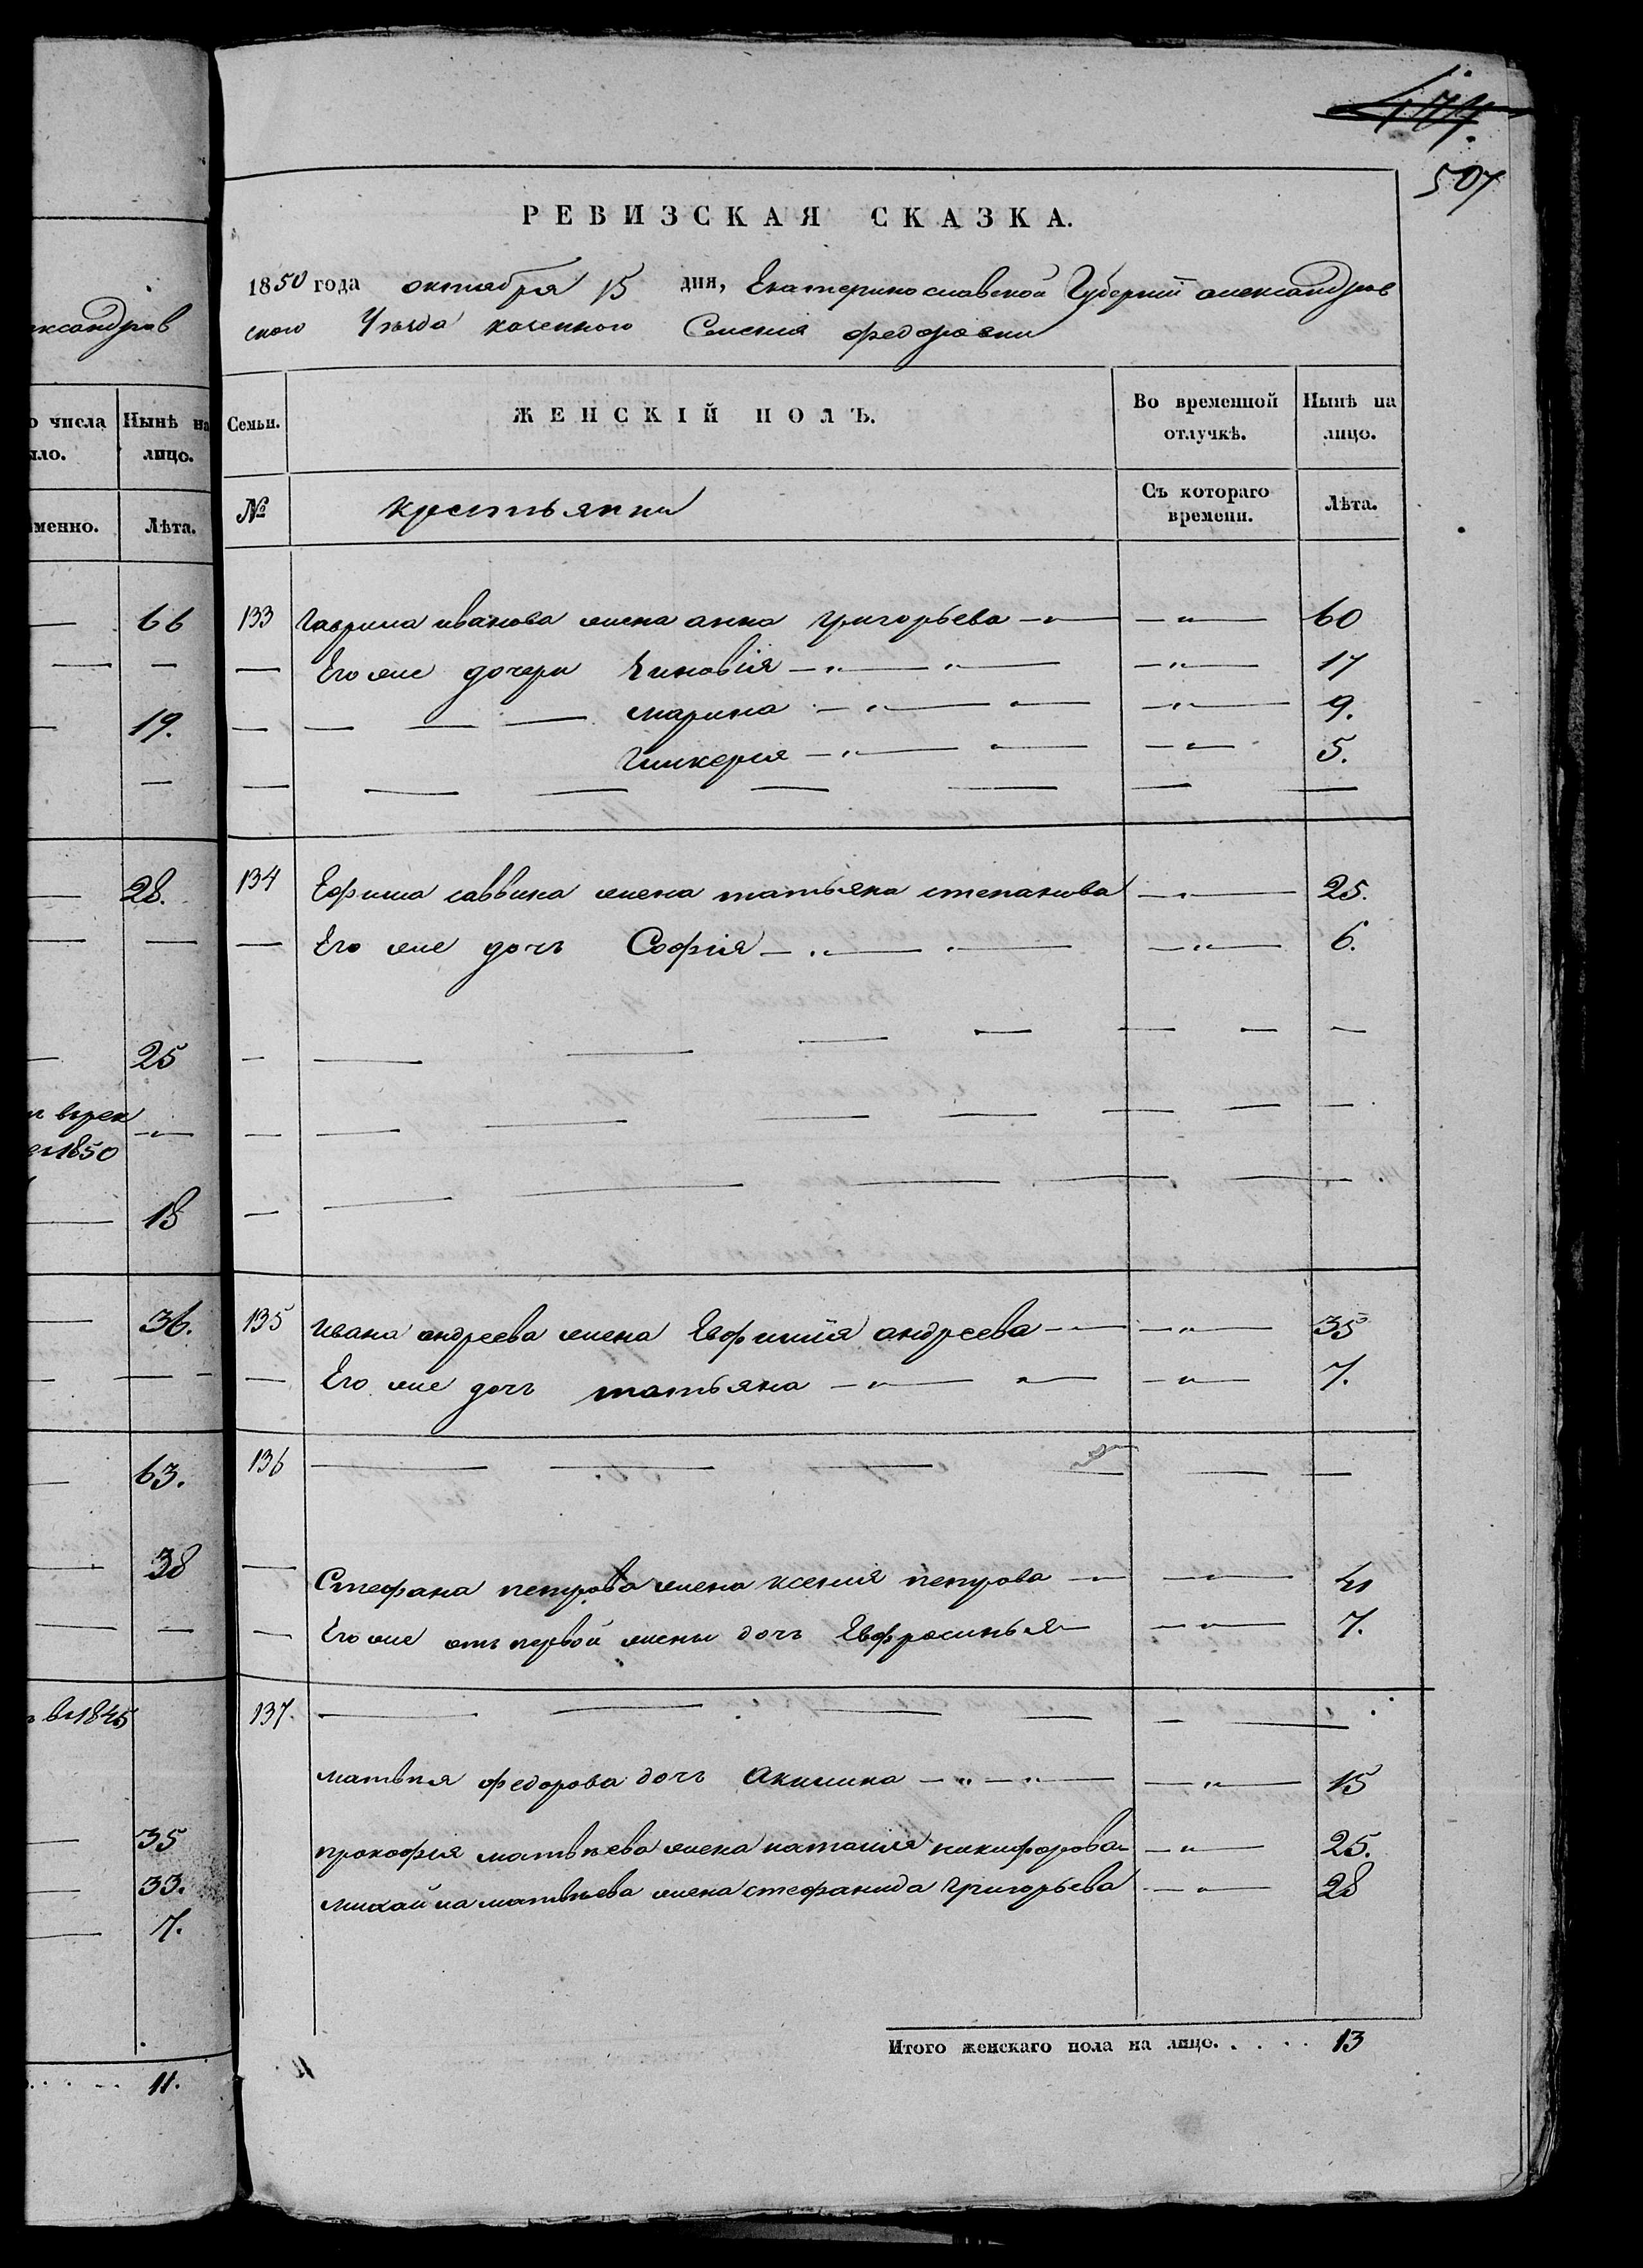 507
РЕВИЗСКАЯ СКАЗКА.
1850 года октября 15 дня, Екатеринославской Губернии александров
ского Уѣзда казенного Селения федоровки
ександров
о числа Нынѣ на
ыло. лицо.
менно. Лѣта.
Семьи. ЖЕНСКІЙ ПОЛЪ. Во временной отлучкѣ. Нынѣ на лицо.
№ крестьянки Съ котораго времени. Лѣта.
66
19.
28.
25
1850
18
36.
63.
38
в 1845
35
33.
7.
11.
133 Гаврила иванова жена анна григорьева — " — — " — 60
— Его же дочери Зиновія — " — " — — " — 17
— — — — марина — " — " — — " — 9.
Гликерия — " — " — — " — 5.
— — — — — — —
134 Ефима саввина жена татьяна степанова — " — 25.
— Его же дочь Софія — " — " — — " — 6.
— — — — — — — —
— — — — — — — —
— — — — — — —
135 Ивана андреева жена Евфимія андреева — " — — " — 35
— Его же дочь татьяна — " — " — — " — 7.
136 — — — — — —
— Стефана петрова жена ксения петрова — " — — " — 21
— Его же отъ первой жены дочь Евфросинья — — " — 7.
137. — — — — — —
матвѣя федорова дочь Акилина — " — " — — " — 15
прокофія матвѣева жена наталия никифорова — — " — 25.
михайла матвѣева жена стефанида григорьева — " — 28
Итого женскаго пола на лицо. . . . . 13